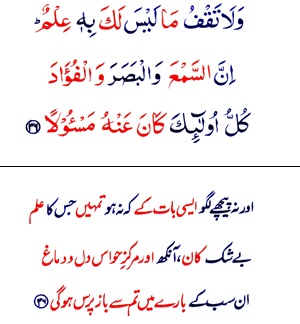 وَلَا تَقْفُ مَا لَيْسَ لَكَ بِهٖ عِلْمٌ ؕ
اِنَّ السَّمْعَ وَالْبَصَرَ وَالْفُؤَادَ
كُلُّ اُولٰٓئِكَ كَانَ عَنْهُ مَسْـُٔوْلًا ﴿۳۶﴾
اور نہ پیچھے لگو ایسی بات کے کہ نہ ہو تمہیں جس کا علم
بے شک کان، آنکھ اور مرکزِ حواس دل و دماغ
ان سب کے بارے میں تم سے باز پرس ہو گی ﴿۳۶﴾